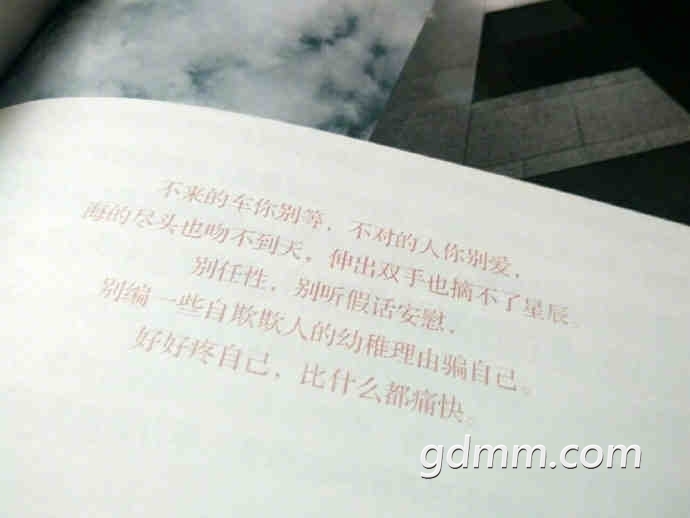 不来的车你别等，不对的人你别爱，
海的尽头也吻不到天，伸出双手也摘不了星辰。
别任性，别听假话安慰，
别编一些自欺欺人的幼稚理由骗自己。
好好疼自己，比什么都痛快。
gdmm.com